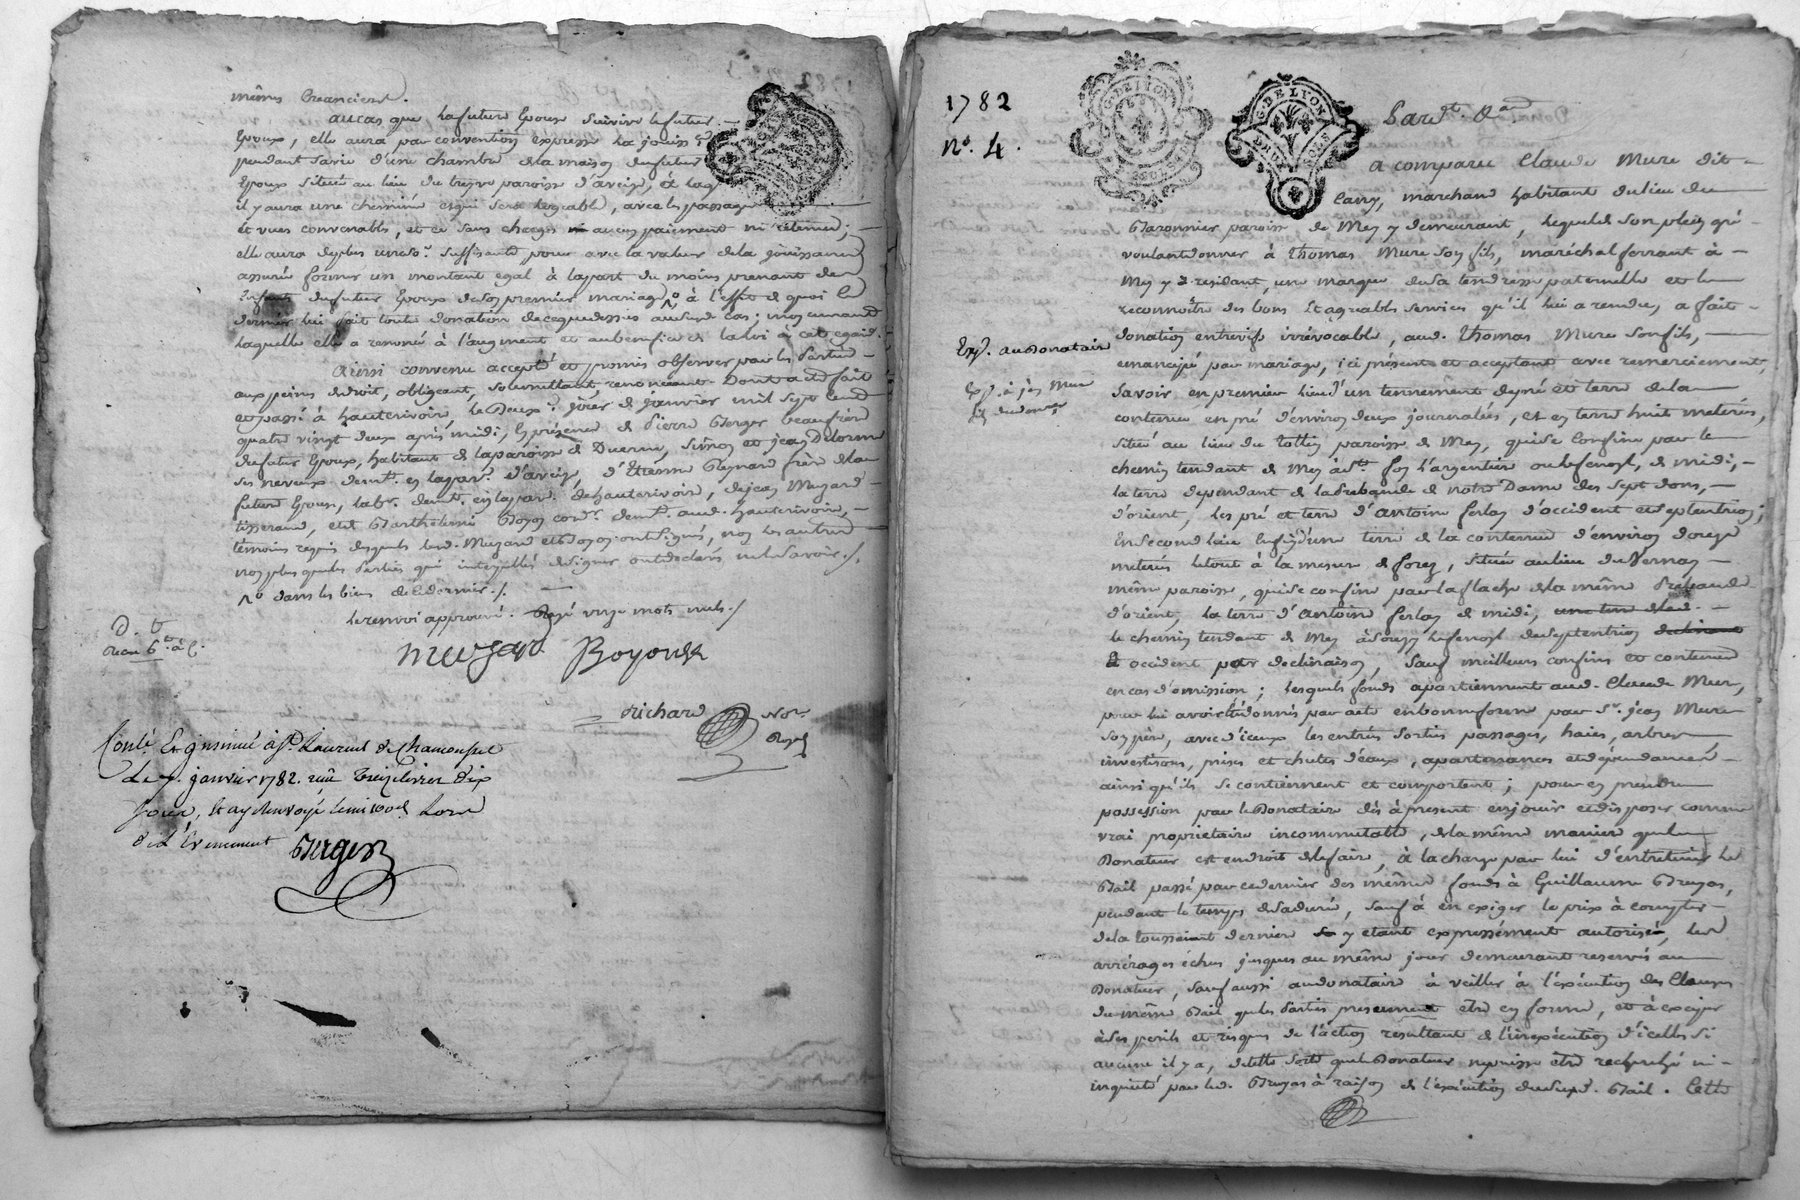 mêmes Creanciers.
au cas que la future Epouse survive le futur
Epoux, elle aura par convention expresse la jouiss.ce
pendant sa vie d'une chambre de la maison du futur
Epoux située au lieu du paroisse d'aveize, à laq
il y aura une cheminée et qui sera logeable, avec les passages
et vues convenables, et ce sans charges ni aucun paiement ni retenue;
elle aura de plus une so.e suffisante pour avec la valeur de la jouissance
assurée former un montant egal à la part du moins prenant des
Enfants du futur Epoux de son premier mariage, à l'effet de quoi le
dernier lui fait toute donation de ce que dessus aud. cas; moyennant
laquelle elle a renoncé à l'augment et au benefice de la loi à cet egard.
Ainsi convenu accepté et promis observer par les Parties
aux peines de droit, obligeant, soumettant renonceant. Dont acte fait
et passé à hauterivoire, le Deux.e jour de janvier mil sept cent
quatre vingt deux après midi, En présence de Pierre Berger beaufrère
du futur Epoux, habitant de la paroisse de Duerne, Simon et jean Delorme
ses neveux dem.t en la par. d'aveize, d'Etienne Reynard frère de la
future Epouse, lab.r dem.t en la par. de hauterivoire, de jean Muzard
tisserand, et de Barthelemi Boyon cord.r dem.t aud. hauterivoire,
temoins requis desquels lesd. Muzard et Boyon ont Signé, non les autres
non plus que les Parties qui interpellés de signer ont declaré ne le savoir ./.
dans les biens de ce dernier ./.
le renvoi approuvé. Rayé mots nuls ./
muzard Boyond
Richard No.re
Royal
Conté Et insinué à St Laurent de Chamousset
le 7. janvier 1782. reçu Treize livres dix
sous, Et ay renvoyé le mi 100.e Lors
de l'Evenement Berger
1782
N.° 4.
G. DE LYON
G. DE LYON
DEUX SOLS
Par.dt &.a
a comparu Claude Mure dit
Cany, marchand habitant du lieu du
Baronnier paroisse de Mey y demeurant, lequel de son plein gré
voulant donner à Thomas Mure son fils, maréchal ferrant à
Mey y residant, une marque de sa tendresse paternelle et le
reconnoitre des bons Et agreables services qu'il lui a rendu, a fait
donation entrevifs irrévocable, aud. Thomas Mure son fils,
emancipé par mariage, ici présent et acceptant avec remerciement,
Exp. au Donataire
Exp. à jn Mure
Savoir, en premier lieu d'un tennement de pré et terre de la
contenue en pré d'environ deux journalées, et en terre huit meterées,
situé au lieu du Tollin paroisse de Mey, qui se confine par le
chemin tendant de Mey à St. foy l'argentiere ou le Fenoyl, de midi,
la terre dependant de la Prebande de notre Dame des sept dons,
d'orient, les pré et terre d'antoine ferlay d'occident et septentrion;
En second lieu Enfin d'une terre de la contenue d'environ douze
meterées le tout à la mesure de forez, située au lieu du Vernay
même paroisse, qui se confine par la flache de la même Prebande
d'orient, la terre d'antoine ferlay de midi,
le chemin tendant de Mey à Souzy le fenoyl de septentrion
& occident par declinaison, Sauf meilleurs confins et contenue
en cas d'omission; lesquels fonds apartiennent aud. Claude Mure,
pour lui avoir été donnés par acte en bonne forme par S.r jean Mure
son père, avec d'iceux les entrées sorties passages, haies, arbres
investisons, prises et chutes d'eaux, apartenances et dépendances
ainsi qu'ils se contiennent et comportent; pour en prendre
possession par le Donataire dès à present en jouir et disposer comme
vrai proprietaire incommutable, de la même maniere que le
Donateur est en droit de le faire, à la charge par lui d'entretenir le
Bail passé par ce dernier des mêmes fonds à Guillaume Bruyas,
pendant le temps de sa durée, sauf à en exiger le prix à compter
de la toussaint derniere y étant expressément autorisé, les
arrérages échus jusques au même jour demeurant reservés au
Donateur, sauf aussi au donataire à veiller à l'exécution des Clauses
du même Bail que les Parties prennent être en forme, et à exciper
à ses perils et risques de l'action resultant de l'inexécution d'icelles si
aucune il y a, de telle sorte que le Donateur ne puisse être recherché ni
inquieté par led. Bruyas à raison de l'exécution dudit Bail. Cette